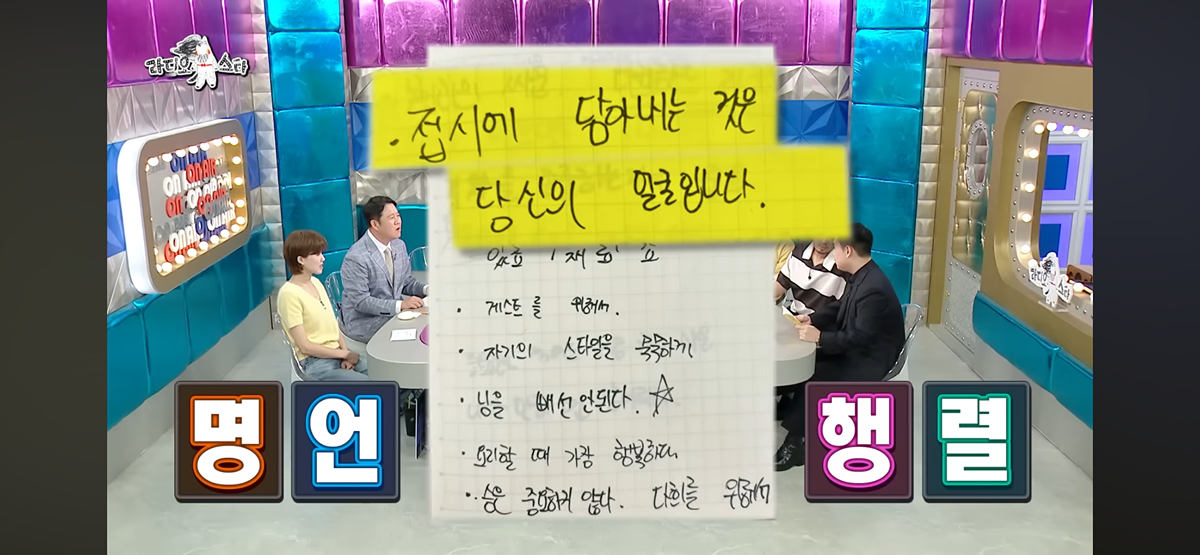 라디오스타
ON AIR
· 접시에 담아내는 것은
당신의 얼굴입니다.
· 게스트를 위해서.
· 자기의 스타일을 묵묵하게
· 님을 배선 안된다. ☆
· 요리할 때 가장 행복하다
· 승은 중요하지 않다. 다희를 위해서
명언
행렬